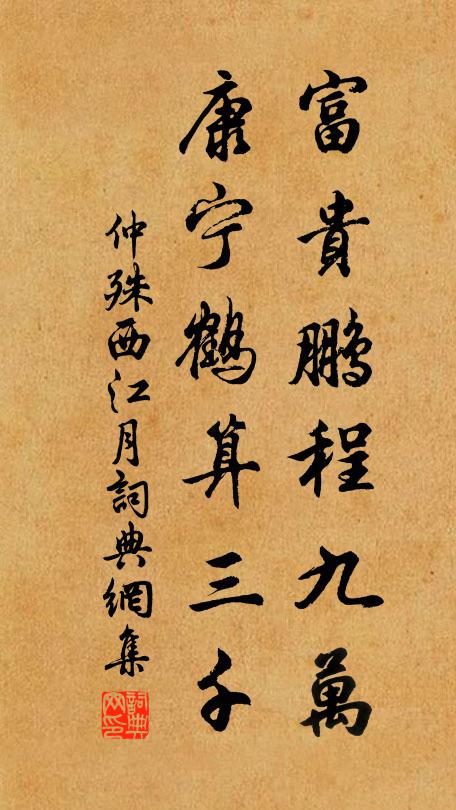 富貴鹏程九萬
康宁鶴算三千
仲殊西江月詞典網集
詞典网印